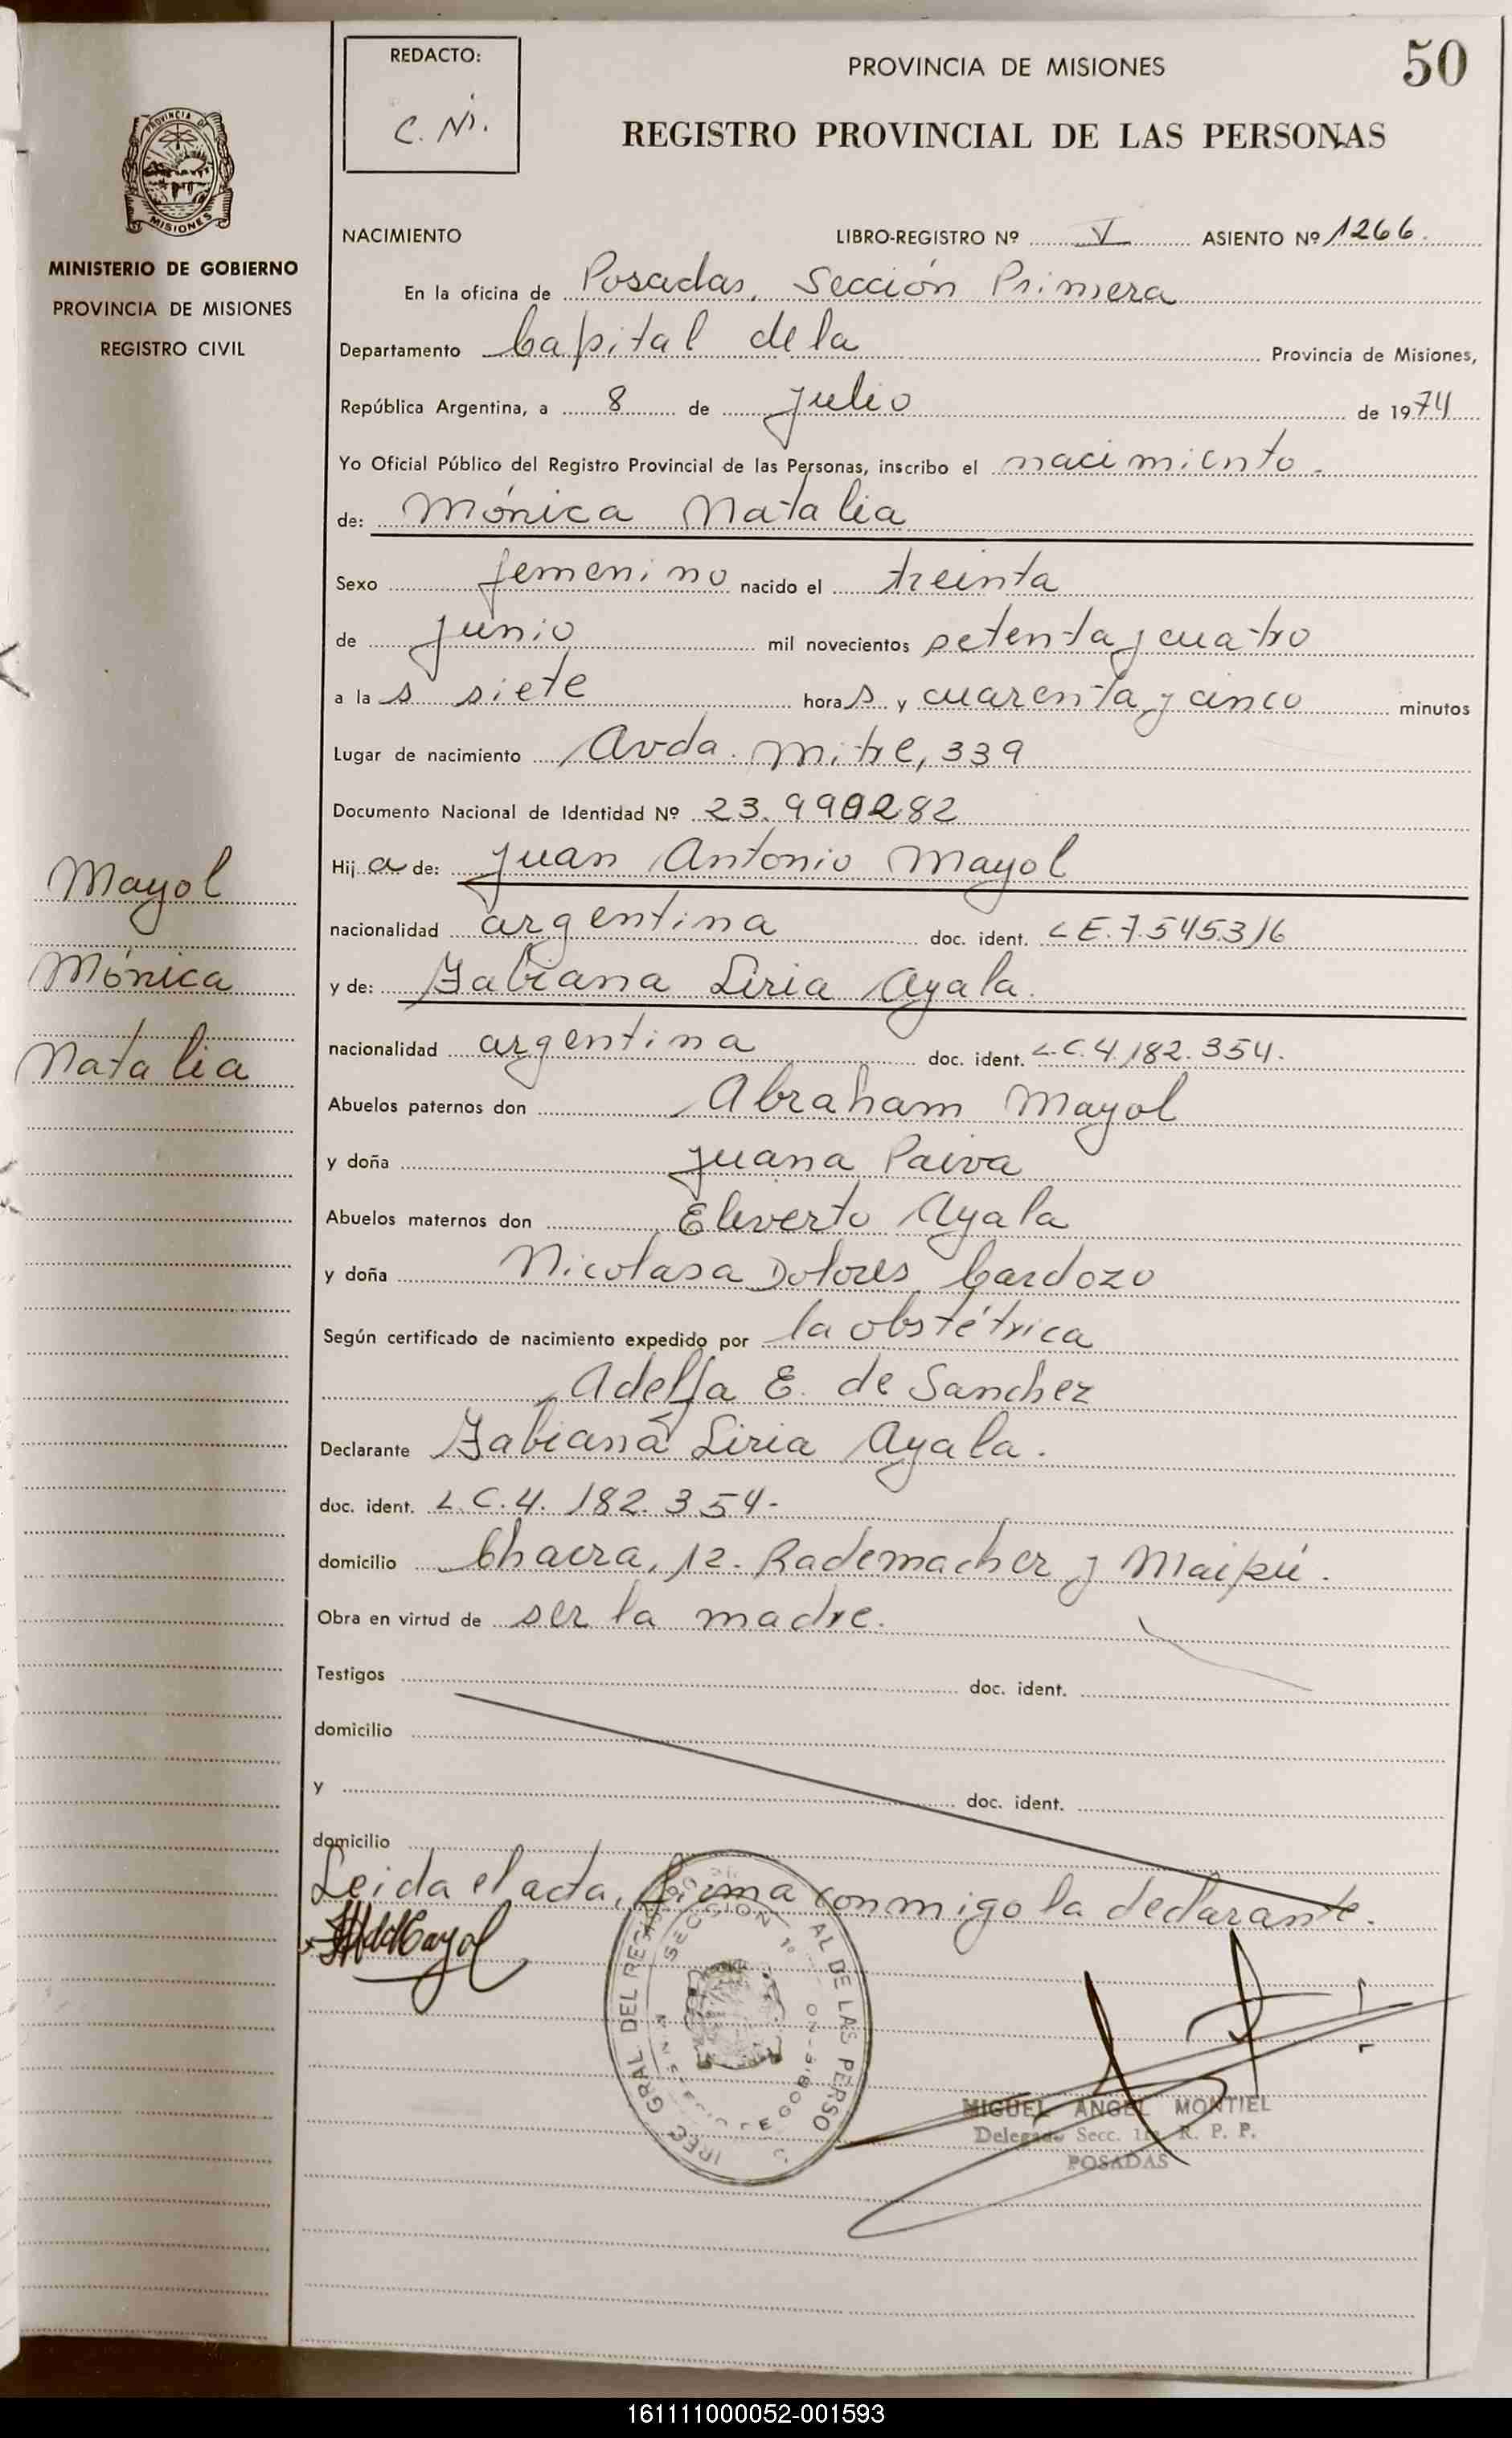 REDACTO:
C. N.
PROVINCIA DE MISIONES
50
REGISTRO PROVINCIAL DE LAS PERSONAS
PROVINCIA DE
MISIONES
MINISTERIO DE GOBIERNO
PROVINCIA DE MISIONES
REGISTRO CIVIL
NACIMIENTO LIBRO-REGISTRO Nº V ASIENTO Nº 1266.
En la oficina de Posadas, Sección Primera
Departamento Capital de la Provincia de Misiones,
República Argentina, a 8 de Julio de 1974
Yo Oficial Público del Registro Provincial de las Personas, inscribo el nacimiento.
de: Mónica Natalia
Sexo femenino nacido el treinta
de junio mil novecientos setenta y cuatro
a la s siete hora s y cuarenta y cinco minutos
Lugar de nacimiento Avda. Mitre, 339
Documento Nacional de Identidad Nº 23.990282
Hij a de: Juan Antonio Mayol
nacionalidad argentina doc. ident. L E. 7.545.316
y de: Fabiana Liria Ayala.
nacionalidad argentina doc. ident. L.C. 4.182.354.
Abuelos paternos don Abraham Mayol
y doña Juana Paiva
Abuelos maternos don Eleverto Ayala
y doña Nicolasa Dolores Cardozo
Según certificado de nacimiento expedido por la obstétrica
Adelfa E. de Sanchez
Declarante Fabiana Liria Ayala.
doc. ident. L.C. 4. 182. 354-
domicilio Chacra, 12. Rademacher y Maipú.
Obra en virtud de ser la madre.
Testigos doc. ident.
domicilio
y doc. ident.
domicilio
Leida el acta, firma conmigo la declarante.
Mayol
Mónica
Natalia
GRAL DEL REG AL DE LAS PERSO
SECCION 1º
MIGUEL ANGEL MONTIEL
Delegado Secc. 1ra. R. P. P.
POSADAS
161111000052-001593